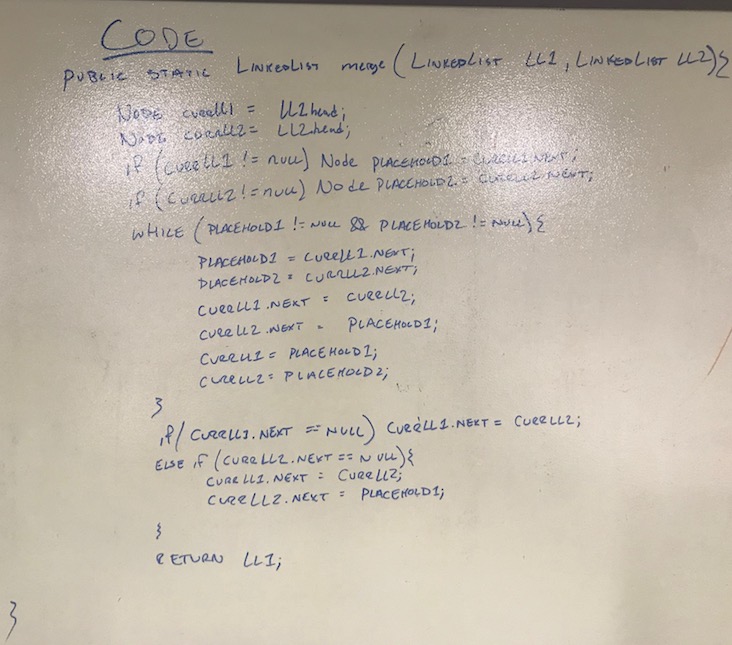 CODE
PUBLIC STATIC LINKEDLIST merge (LINKEDLIST LL1, LINKEDLIST LL2){
NODE CURRLL1 = LL1head;
NODE CURRLL2 = LL2.head;
if (CURRLL1 != NULL) Node PLACEHOLD1 = CURRLL1.NEXT;
if (CURRLL2 != NULL) Node PLACEHOLD2 = CURRLL2.NEXT;
WHILE (PLACEHOLD1 != NULL && PLACEHOLD2 != NULL){
PLACEHOLD1 = CURRLL1.NEXT;
PLACEHOLD2 = CURRLL2.NEXT;
CURRLL1.NEXT = CURRLL2;
CURRLL2.NEXT = PLACEHOLD1;
CURRLL1 = PLACEHOLD1;
CURRLL2 = PLACEHOLD2;
}
if (CURRLL1.NEXT == NULL) CURRLL1.NEXT = CURRLL2;
ELSE if (CURRLL2.NEXT == NULL){
CURRLL1.NEXT = CURRLL2;
CURRLL2.NEXT = PLACEHOLD1;
}
RETURN LL1;
}